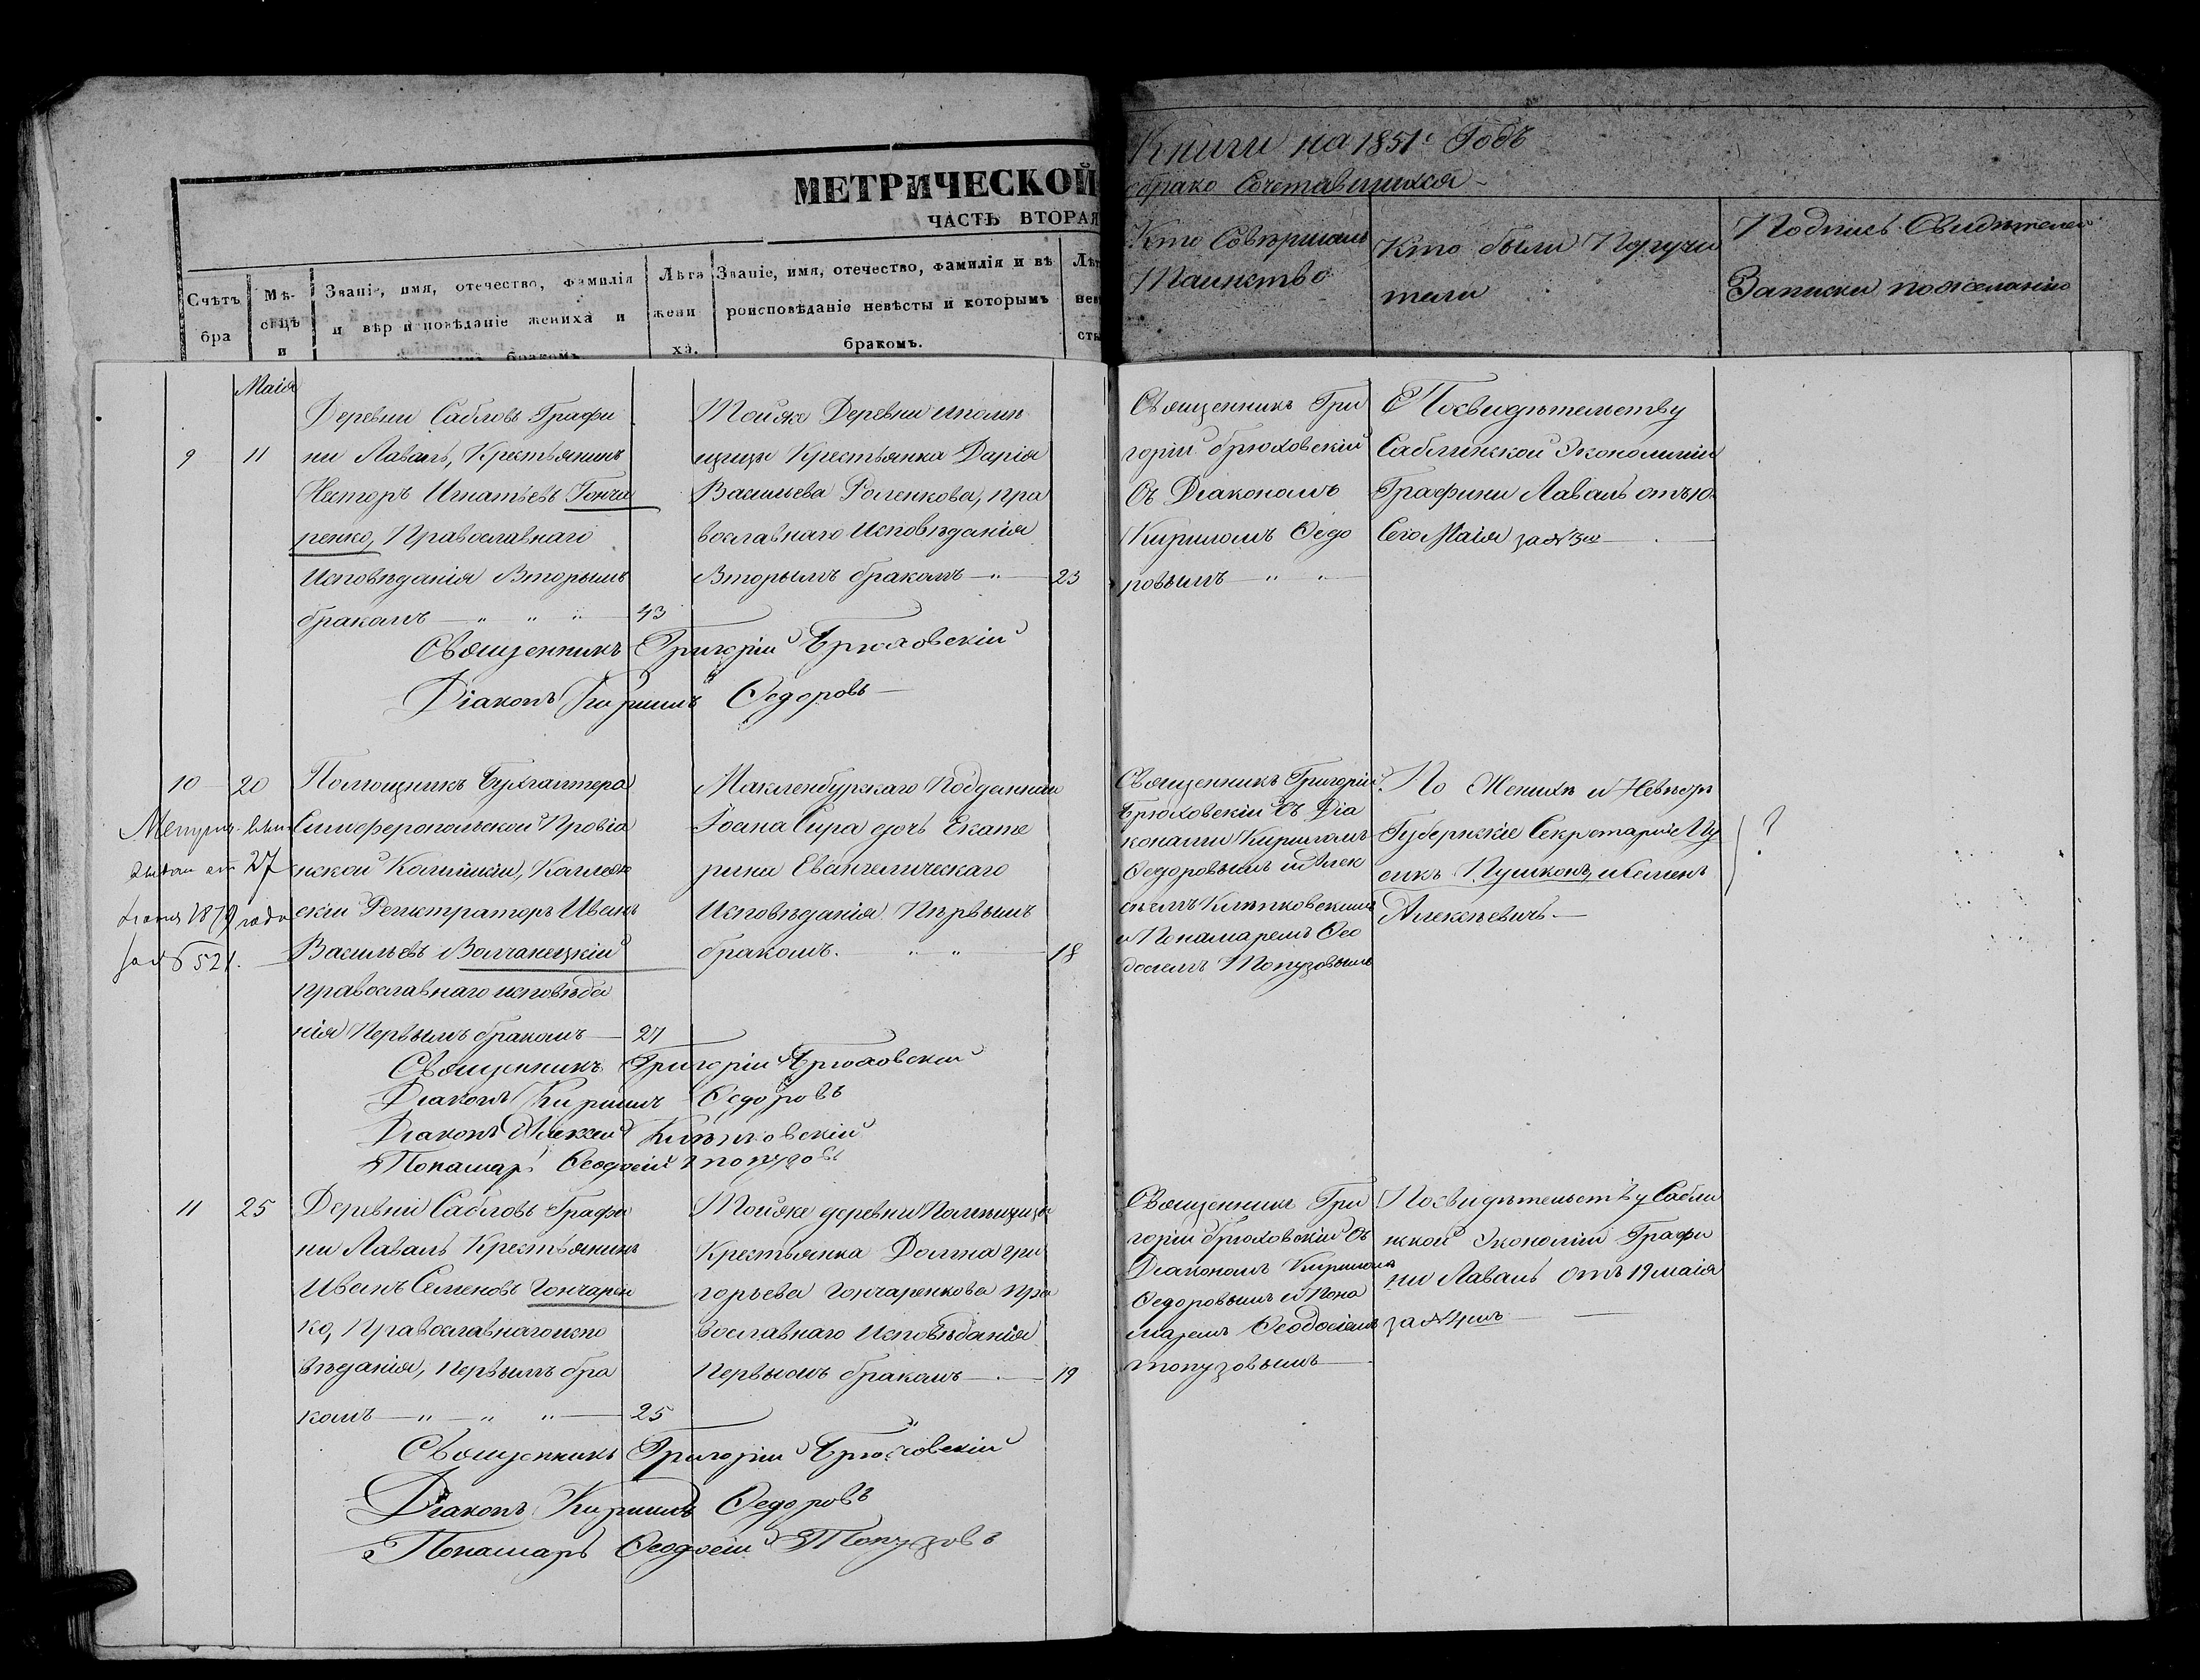 МЕТРИЧЕСКОЙ
ЧАСТЬ ВТОРАЯ
Счетъ
бра
Мѣ-
сяцъ
и
Званіе, имя, отечество, фамилія
и вѣроисповѣданіе жениха и
бракомъ
Лѣта
жени
ха.
Званіе, имя, отечество, фамилія и вѣ
роисповѣданіе невѣсты и которымъ
бракомъ.
Лѣт
нев
сты
Книги на 1851й Годъ
о брако Сочетавшихся
Кто Совершалъ
Таинство
Кто были Поручи
тели
Подпись Свидѣтелей
Записки по желанію
Маія
9
11
Деревни Сабловъ Графи
ни Лаваль, Крестьянинъ
Несторъ Игнатьевъ Гонча
ренко, Православнаго
Исповѣданія Вторымъ
бракомъ
43
Тойже Деревни и помѣ
щицы Крестьянка Дарія
Васильева, пра
вославнаго Исповѣданія
Вторымъ бракомъ
23
Священникъ Гри
горій Брюховскій
Съ Діакономъ
Кириломъ Ѳедо
ровымъ
По свидѣтельству
Саблинской Экономіи
Графини Лаваль отъ 10
Сего Маія за № 3м
Священникъ Григорій Брюховскій
Діаконъ Кириллъ Ѳедоровъ
10
20
Помощникъ Бухгалтера
Симферопольской Провіа
нской Комисіи, Коллеж
скій Регистраторъ Иванъ
Васильевъ Волчанецкій
православнаго исповѣда
нія Первымъ бракомъ
27
27
1879 года
за № 521.
Макленбурскаго Подданнаго
Іоана Сира дочь Екате
рина Евангелическаго
Исповѣданія Первымъ
бракомъ.
18
Священникъ Григорій
Брюховскій Съ Діа
конами Кириломъ
Ѳедоровымъ и Алек
сѣемъ
и Понамаремъ Ѳео
досіемъ Топузовымъ
По Женихѣ и Невѣстѣ
Губернскіе Секретари
Пушковъ, и Семенъ
Алексѣевичъ.
?
Священникъ Григорій Брюховскій
Діаконъ Кириллъ Ѳедоровъ
Діаконъ Алексей
Понамарь Ѳеодосій Топузовъ
11
25
Деревни Сабловъ Графи
ни Лаваль Крестьянинъ
Иванъ Семеновъ Гончарен
ко, Православнаго испо
вѣданія, Первымъ бра
комъ
25
Тойже деревни Помѣщицы
Крестьянка Домна Гри
горьева Гончаренкова пра
вославнаго Исповѣданія
Первымъ бракомъ
19
Священникъ Гри
горій Брюховскій Съ
Діакономъ Кириломъ
Ѳедоровымъ и Пона
маремъ Ѳеодосіемъ
топузовымъ
По свидѣтельству Сабли
нской Экономіи Графи
ни Лаваль Отъ 19 маія
за № 4мъ
Священникъ Григорій Брюховскій
Діаконъ Кириллъ Ѳедоровъ
Понамарь Ѳеодосій Топузовъ